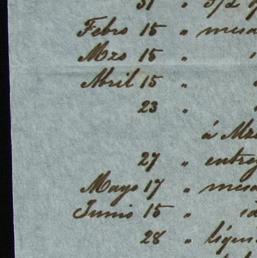 31 " 3/2
Febro 15 " mesa
Mzo 15 "
Abril 15 "
23 "
á Mz
27 " entreg
Mayo 17 " mesa
Junio 15 " id
28 " liqui